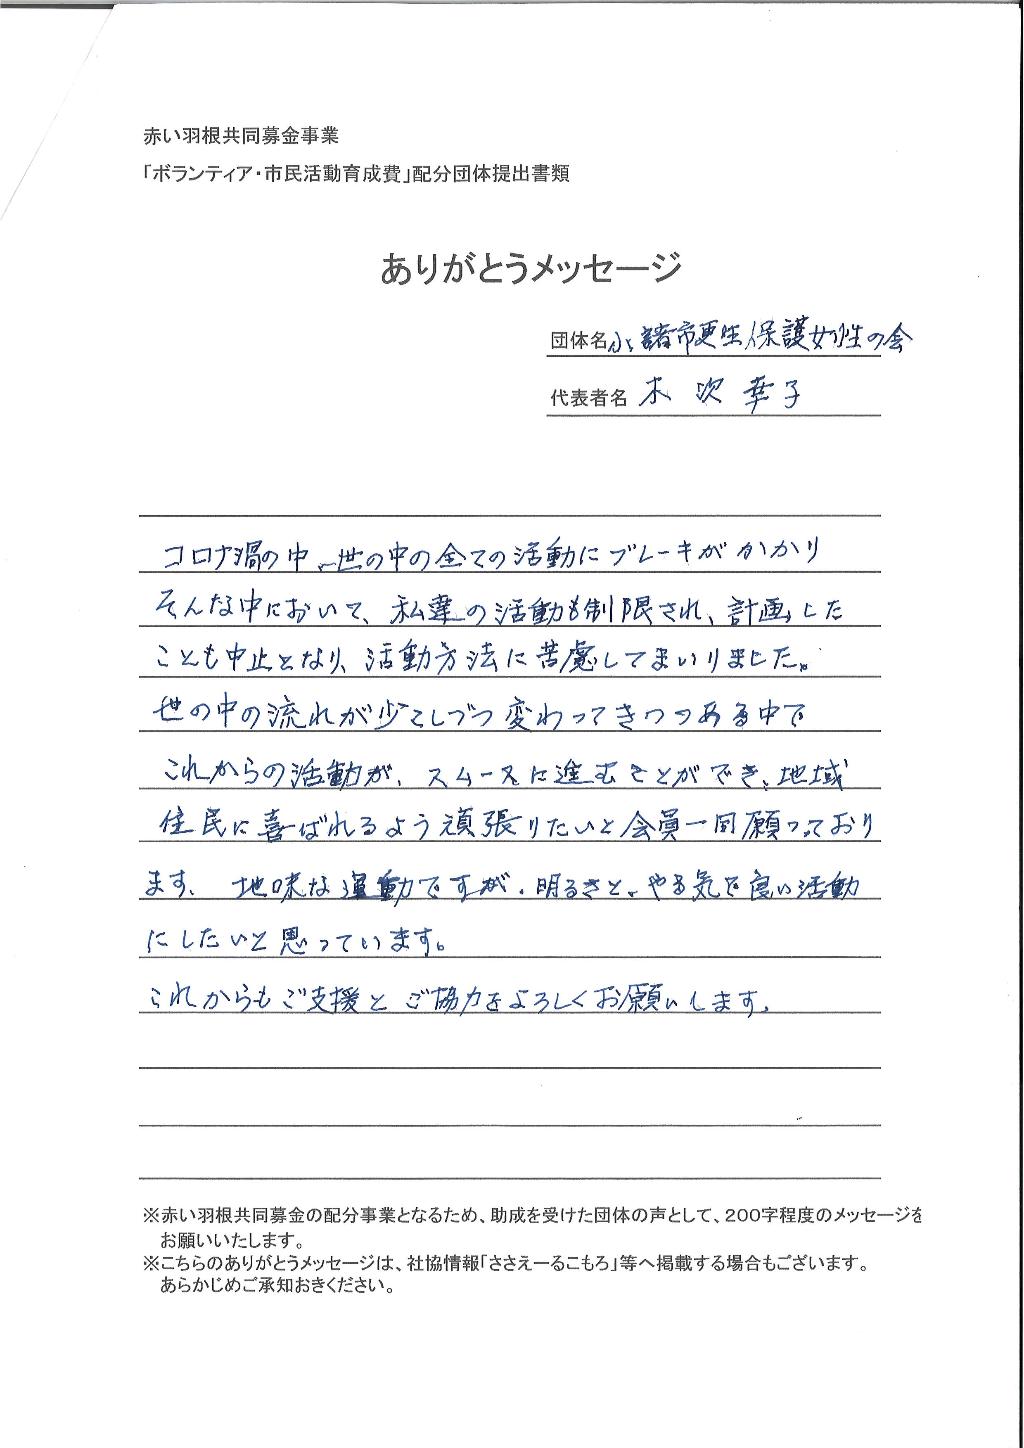 赤い羽根共同募金事業
「ボランティア・市民活動育成費」配分団体提出書類
ありがとうメッセージ
団体名 小諸市更生保護女性の会
代表者名 木次幸子
コロナ渦の中、世の中の全ての活動にブレーキがかかり
そんな中において、私達の活動も制限され、計画した
ことも中止となり、活動方法に苦慮してまいりました。
世の中の流れが少こしづつ変わってきつつある中で
これからの活動が、スムーズに進むことができ、地域
住民に喜ばれるよう頑張りたいと会員一同願っており
ます、地味な運動ですが、明るさと、やる気で良い活動
にしたいと思っています。
これからもご支援とご協力をよろしくお願いします。
※赤い羽根共同募金の配分事業となるため、助成を受けた団体の声として、200字程度のメッセージを
お願いいたします。
※こちらのありがとうメッセージは、社協情報「ささえーるこもろ」等へ掲載する場合もございます。
あらかじめご承知おきください。